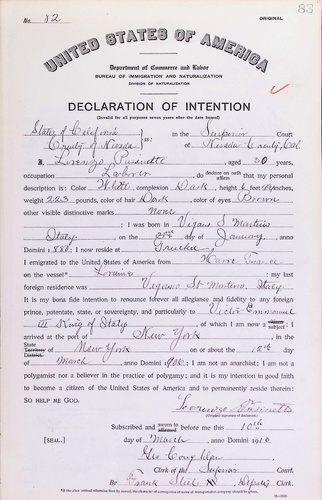 83
No. 82
ORIGINAL
UNITED STATES OF AMERICA
Department of Commerce and Labor
BUREAU OF IMMIGRATION AND NATURALIZATION
DIVISION OF NATURALIZATION
DECLARATION OF INTENTION
(Invalid for all purposes seven years after the date hereof)
State of California
County of Nevada ss: In the Superior Court
of Nevada County, Cal
I, Lorenzo, aged 30 years,
occupation Laborer, do declare on oath affirm that my personal
description is: Color White, complexion Dark, height 6 feet inches,
weight 223 pounds, color of hair Dark, color of eyes Brown
other visible distinctive marks None
I was born in Vigano S Martino
Italy on the day of January, anno
Domini 1880; I now reside at Truckee
I emigrated to the United States of America from Havre France
on the vessel* Lorraine; my last
foreign residence was Vigano St Martino Italy
It is my bona fide intention to renounce forever all allegiance and fidelity to any foreign
prince, potentate, state, or sovereignty, and particularly to Victor Emmanuel
King of Italy, of which I am now a subject; I
arrived at the port of New York, in the
State Territory District of New York on or about the 12th day
of March, anno Domini; I am not an anarchist; I am not a
polygamist nor a believer in the practice of polygamy; and it is my intention in good faith
to become a citizen of the United States of America and to permanently reside therein:
SO HELP ME GOD.
Lorenzo
(Original signature of declarant)
Subscribed and sworn to affirmed before me this 10th
[SEAL.] day of March, anno Domini 1910
Geo Coughlan
Clerk of the Superior Court.
By Frank, Deputy Clerk.